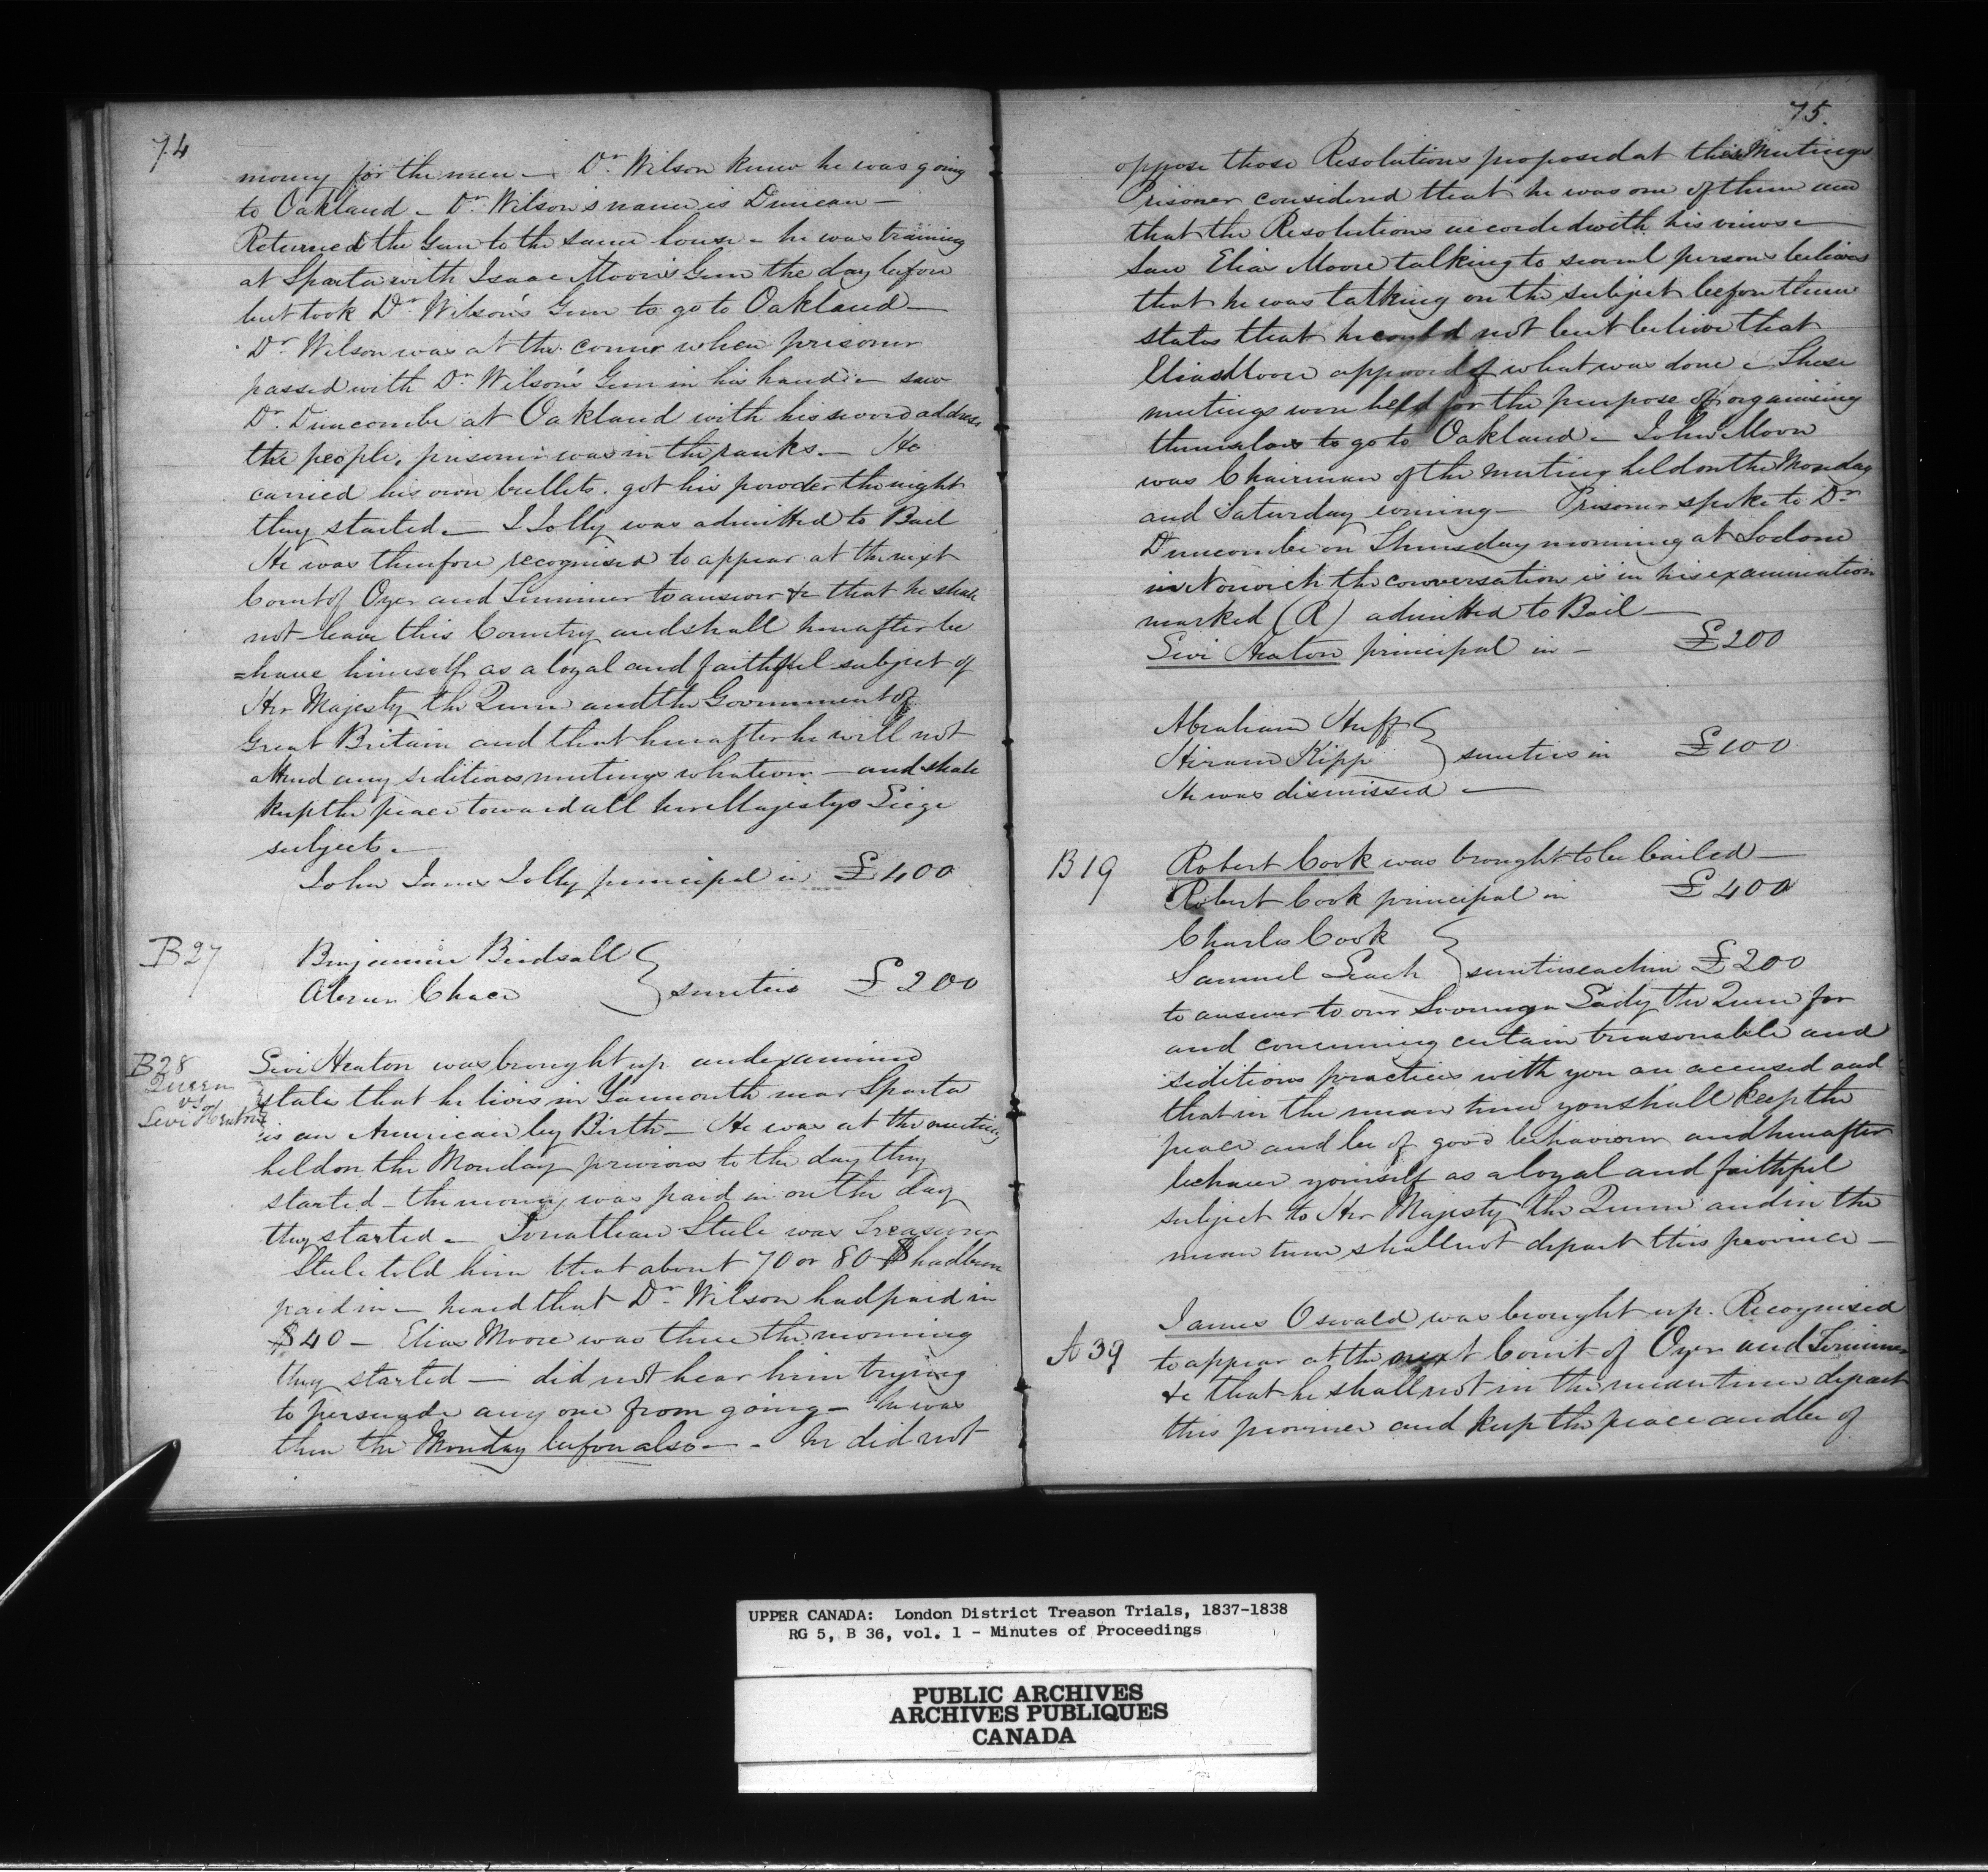 74
money for the men — Dr. Wilson knew he was going
to Oakland — Dr. Wilson's name is Duncan —
Returned the Gun to the same house — he was training
at Sparta with Isaac Moore's Gun the day before
but took Dr. Wilson's Gun to go to Oakland —
Dr. Wilson was at the corner when prisoner
passed with Dr. Wilson's Gun in his hand — saw
Dr. Duncombe at Oakland with his sword address
the people, prisoner was in the ranks — He
carried his own bullets. got his powder the night
they started — J Jolly was admitted to Bail
He was therefore recognised to appear at the next
Court of Oyer and Terminer to answer &c that he shall
not leave this Country and shall hereafter be
=have himself as a loyal and faithful subject of
Her Majesty the Queen and the Government of
Great Britain and that hereafter he will not
attend any seditious meetings whatever — and shall
keep the peace toward all her Majestys Liege
subjects —
John James Jolly principal in £400
B27
Benjamin Birdsall
Abner Chace } sureties £200
B28
Queen
vs
Levi Heaton
Levi Heaton was brought up and examined
states that he lives in Yarmouth near Sparta
is an American by Birth — He was at the meeting
held on the Monday previous to the day they
started — the money was paid in on the day
they started — Jonathan Steele was Treasurer
Steele told him that about 70 or 80 $ had been
paid in — heard that Dr. Wilson had paid in
$40 — Elias Moore was there the morning
they started — did not hear him trying
to persuade any one from going — he was
then the Monday before also — he did not
75.
oppose those Resolutions proposed at these Meetings
Prisoner considered that he was one of them and
that the Resolutions accorded with his views —
saw Elias Moore talking to several persons believes
that he was talking on the subject before them
states that he could not but believe that
Elias Moore approved of what was done — These
meetings were held for the purpose of organising
themselves to go to Oakland — John Moore
was Chairman of the meeting held on the Monday
and Saturday evening — Prisoner spoke to Dr.
Duncombe on Thursday morning at Sodom
in Norwich the conversation is in his examination
marked (R) admitted to Bail —
Levi Heaton principal in — £200
Abraham Huff
Hiram Kipp } sureties in £100
He was dismissed —
B19
Robert Cook was brought to be bailed —
Robert Cook principal in £400
Charles Cook
Samuel Leach } sureties each in £200
to answer to our Sovereign Lady the Queen for
and concerning certain treasonable and
seditious practices with you are accused and
that in the mean time you shall keep the
peace and be of good behaviour and hereafter
behave yourself as a loyal and faithful
subject to Her Majesty the Queen and in the
mean time shall not depart this province —
A 39
James Oswald was brought up. Recognised
to appear at the next Court of Oyer and Terminer
&c that he shall not in the meantime depart
this province and keep the peace and be of
UPPER CANADA: London District Treason Trials, 1837-1838
RG 5, B 36, vol. 1 - Minutes of Proceedings
PUBLIC ARCHIVES
ARCHIVES PUBLIQUES
CANADA